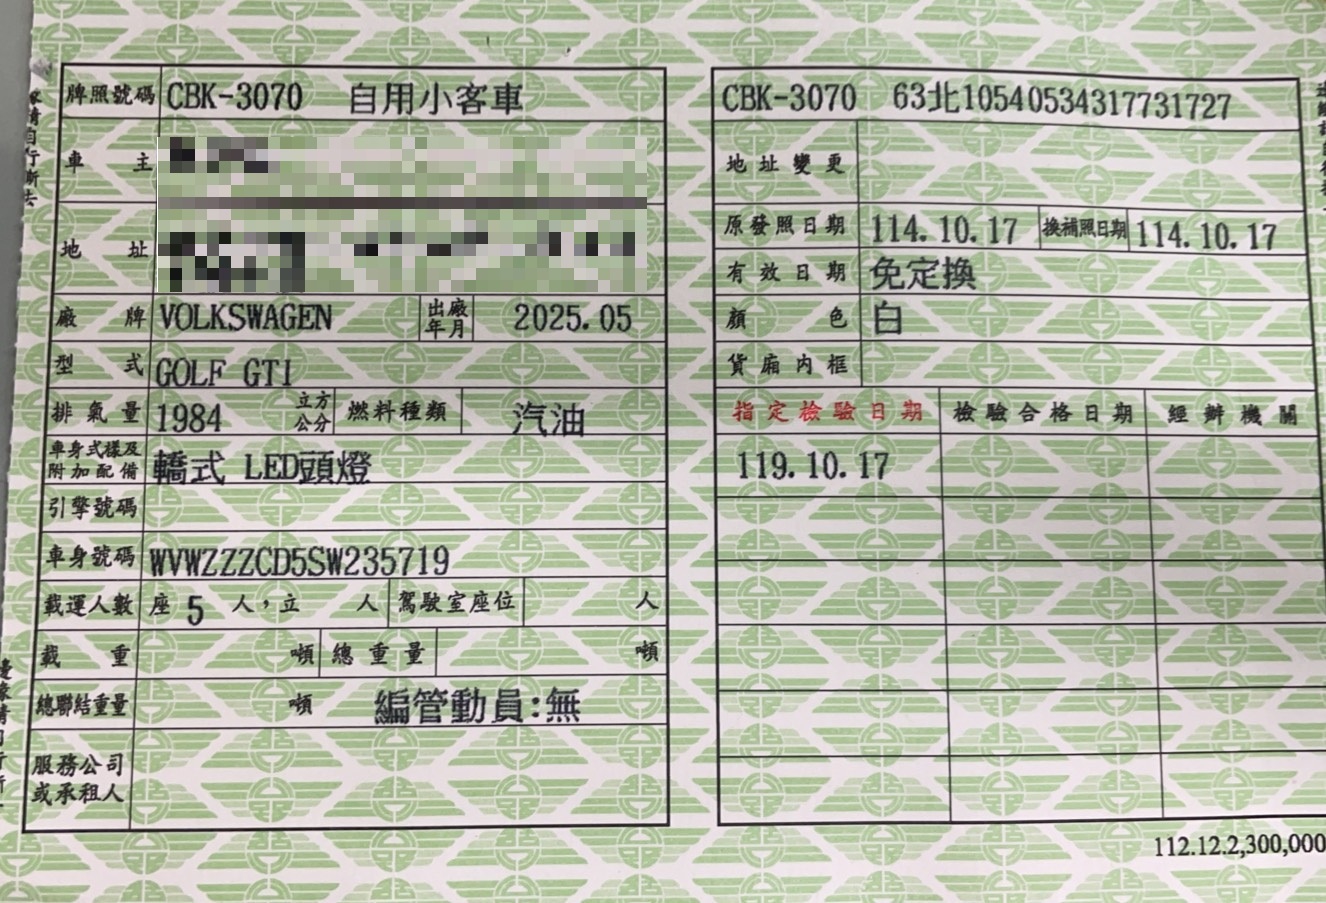 牌照號碼 CBK-3070 自用小客車
車主
地址
廠牌 VOLKSWAGEN 出廠年月 2025.05
型式 GOLF GTI
排氣量 1984 立方公分 燃料種類 汽油
車身式樣及附加配備 轎式 LED頭燈
引擎號碼
車身號碼 WVWZZZCD5SW235719
載運人數 座 5 人，立 人 駕駛室座位 人
載重 噸 總重量 噸
總聯結重量 噸 編管動員:無
服務公司或承租人
CBK-3070 63北10540534317731727
地址變更
原發照日期 114.10.17 換補照日期 114.10.17
有效日期 免定換
顏色 白
貨廂內框
指定檢驗日期 檢驗合格日期 經辦機關
119.10.17
112.12.2,300,000